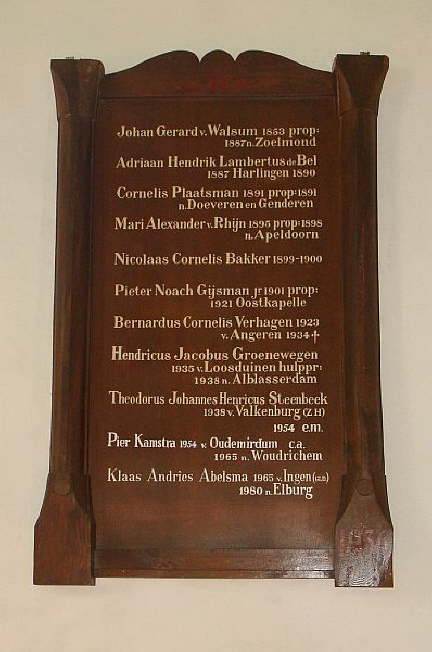 Johan Gerard v. Walsum 1853 prop:
1887 n. Zoelmond
Adriaan Hendrik Lambertus de Bel
1887 Harlingen 1890
Cornelis Plaatsman 1891 prop: 1891
n. Doeveren en Genderen
Mari Alexander v. Rhijn 1895 prop: 1898
n. Apeldoorn
Nicolaas Cornelis Bakker 1899-1900
Pieter Noach Gijsman jr 1901 prop:
1921 Oostkapelle
Bernardus Cornelis Verhagen 1923
v. Angeren 1934 †
Hendricus Jacobus Groenewegen
1935 v. Loosduinen hulppr:
1938 n. Alblasserdam
Theodorus Johannes Henricus Steenbeek
1938 v. Valkenburg (Z H)
1954 e.m.
Pier Kamstra 1954 v. Oudemirdum c.a.
1965 n. Woudrichem
Klaas Andries Abelsma 1965 v. Ingen
1980 n. Elburg